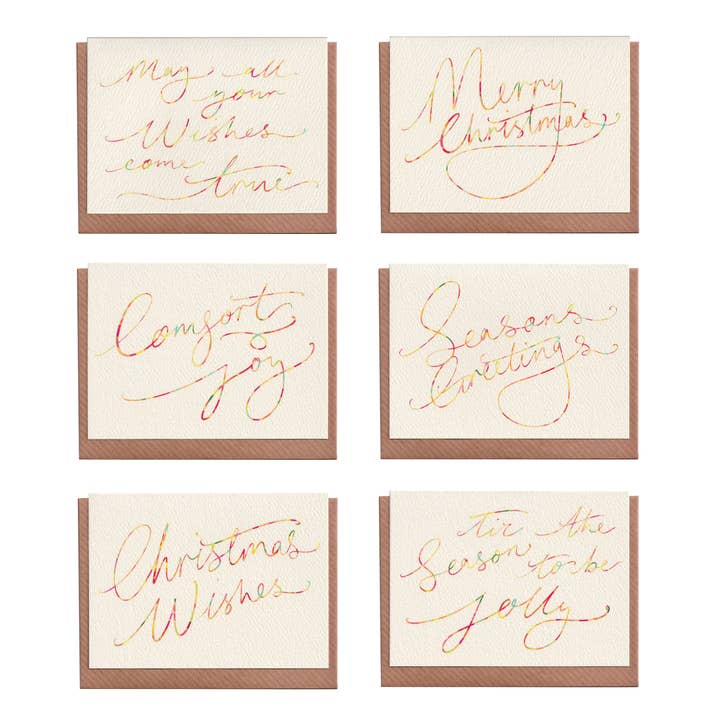 May all
your
Wishes
come true
Merry
Christmas
Comfort
Joy
Seasons
Greetings
Christmas
Wishes
tis the
Season to be
Jolly